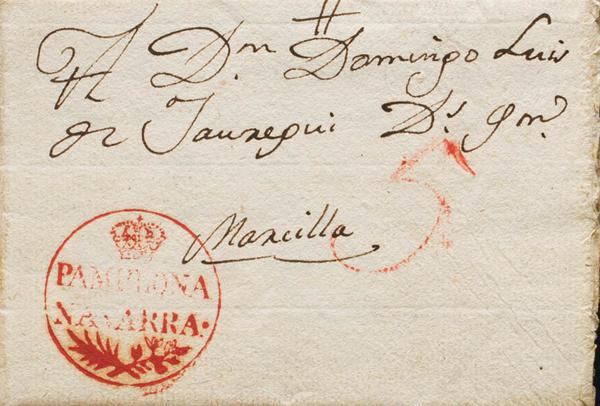 A Dn Domingo Luis
de Jauregui Ds gms
Marcilla
5
PAMPLONA
NAVARRA.